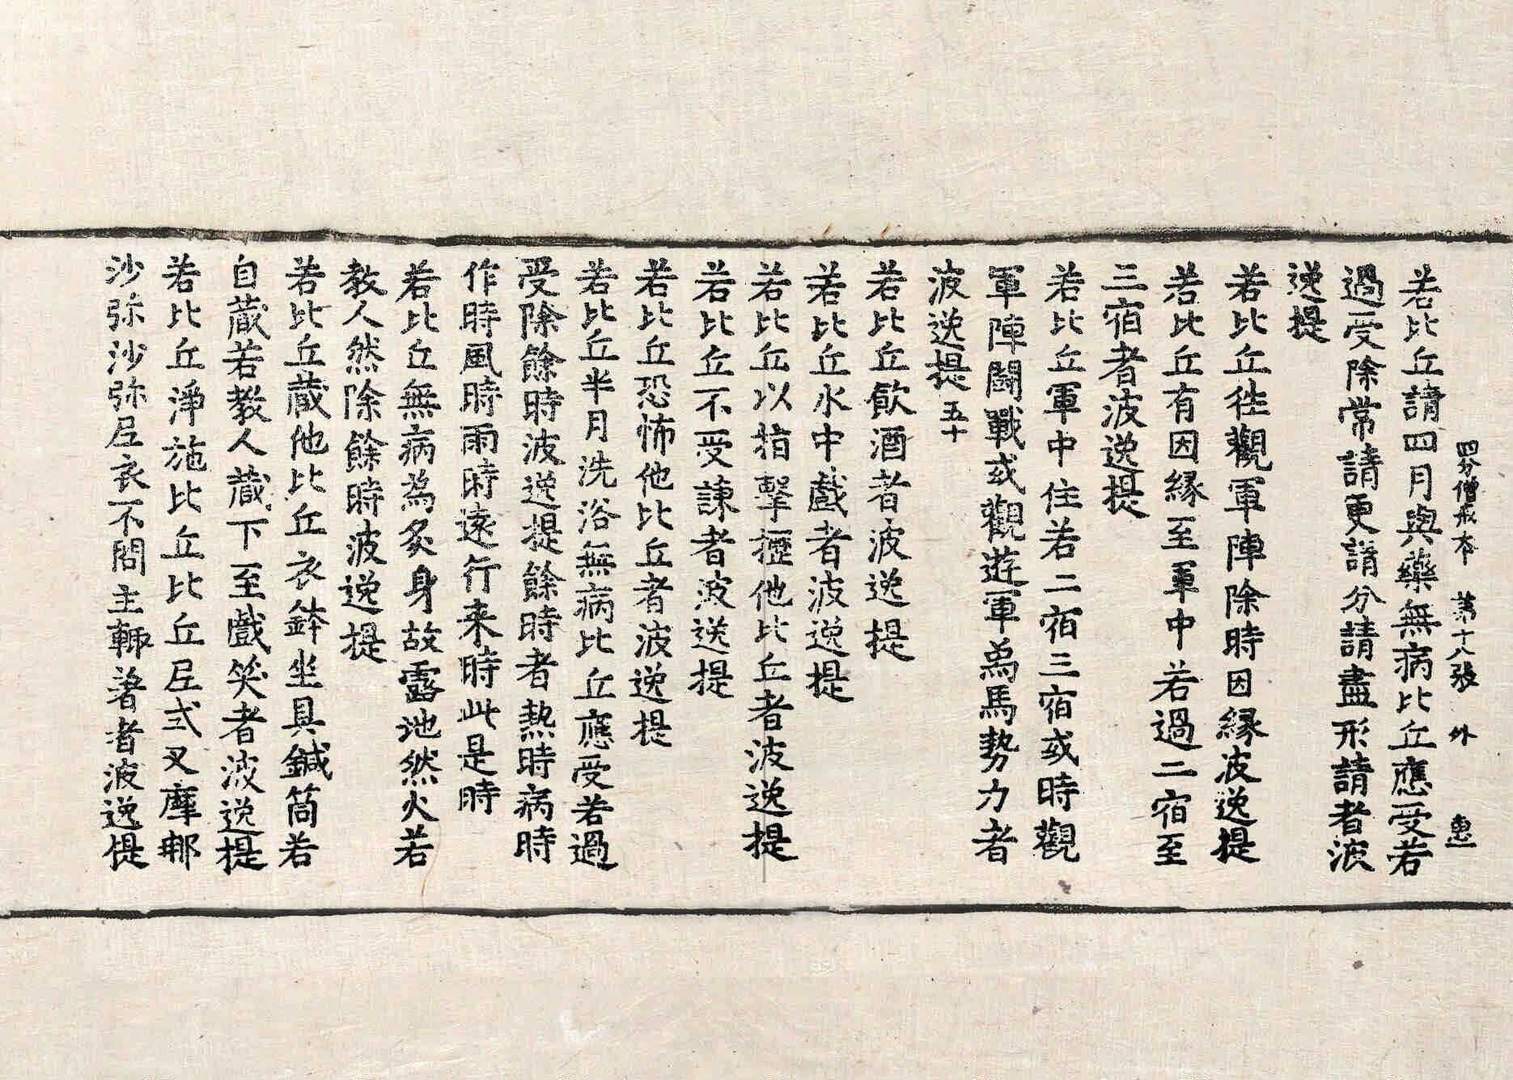 四分僧戒本 第十八張 外 惠
若比丘請四月與藥無病比丘應受若
過受除常請更請分請盡形請者波
逸提
若比丘徃觀軍陣除時因緣波逸提
若比丘有因緣至軍中若過二宿至
三宿者波逸提
若比丘軍中住若二宿三宿或時觀
軍陣鬪戰或觀遊軍爲馬勢力者
波逸提 五十
若比丘飲酒者波逸提
若比丘水中戲者波逸提
若比丘以指擊攊他比丘者波逸提
若比丘不受諫者波逸提
若比丘恐怖他比丘者波逸提
若比丘半月洗浴無病比丘應受若過
受除餘時波逸提餘時者熱時病時
作時風時雨時遠行来時此是時
若比丘無病為炙身故露地然火若
教人然除餘時波逸提
若比丘藏他比丘衣鉢坐具鍼筒若
自藏若教人藏下至戲笑者波逸提
若比丘淨施比丘比丘尼式叉摩那
沙弥沙弥尼衣不問主輙著者波逸提